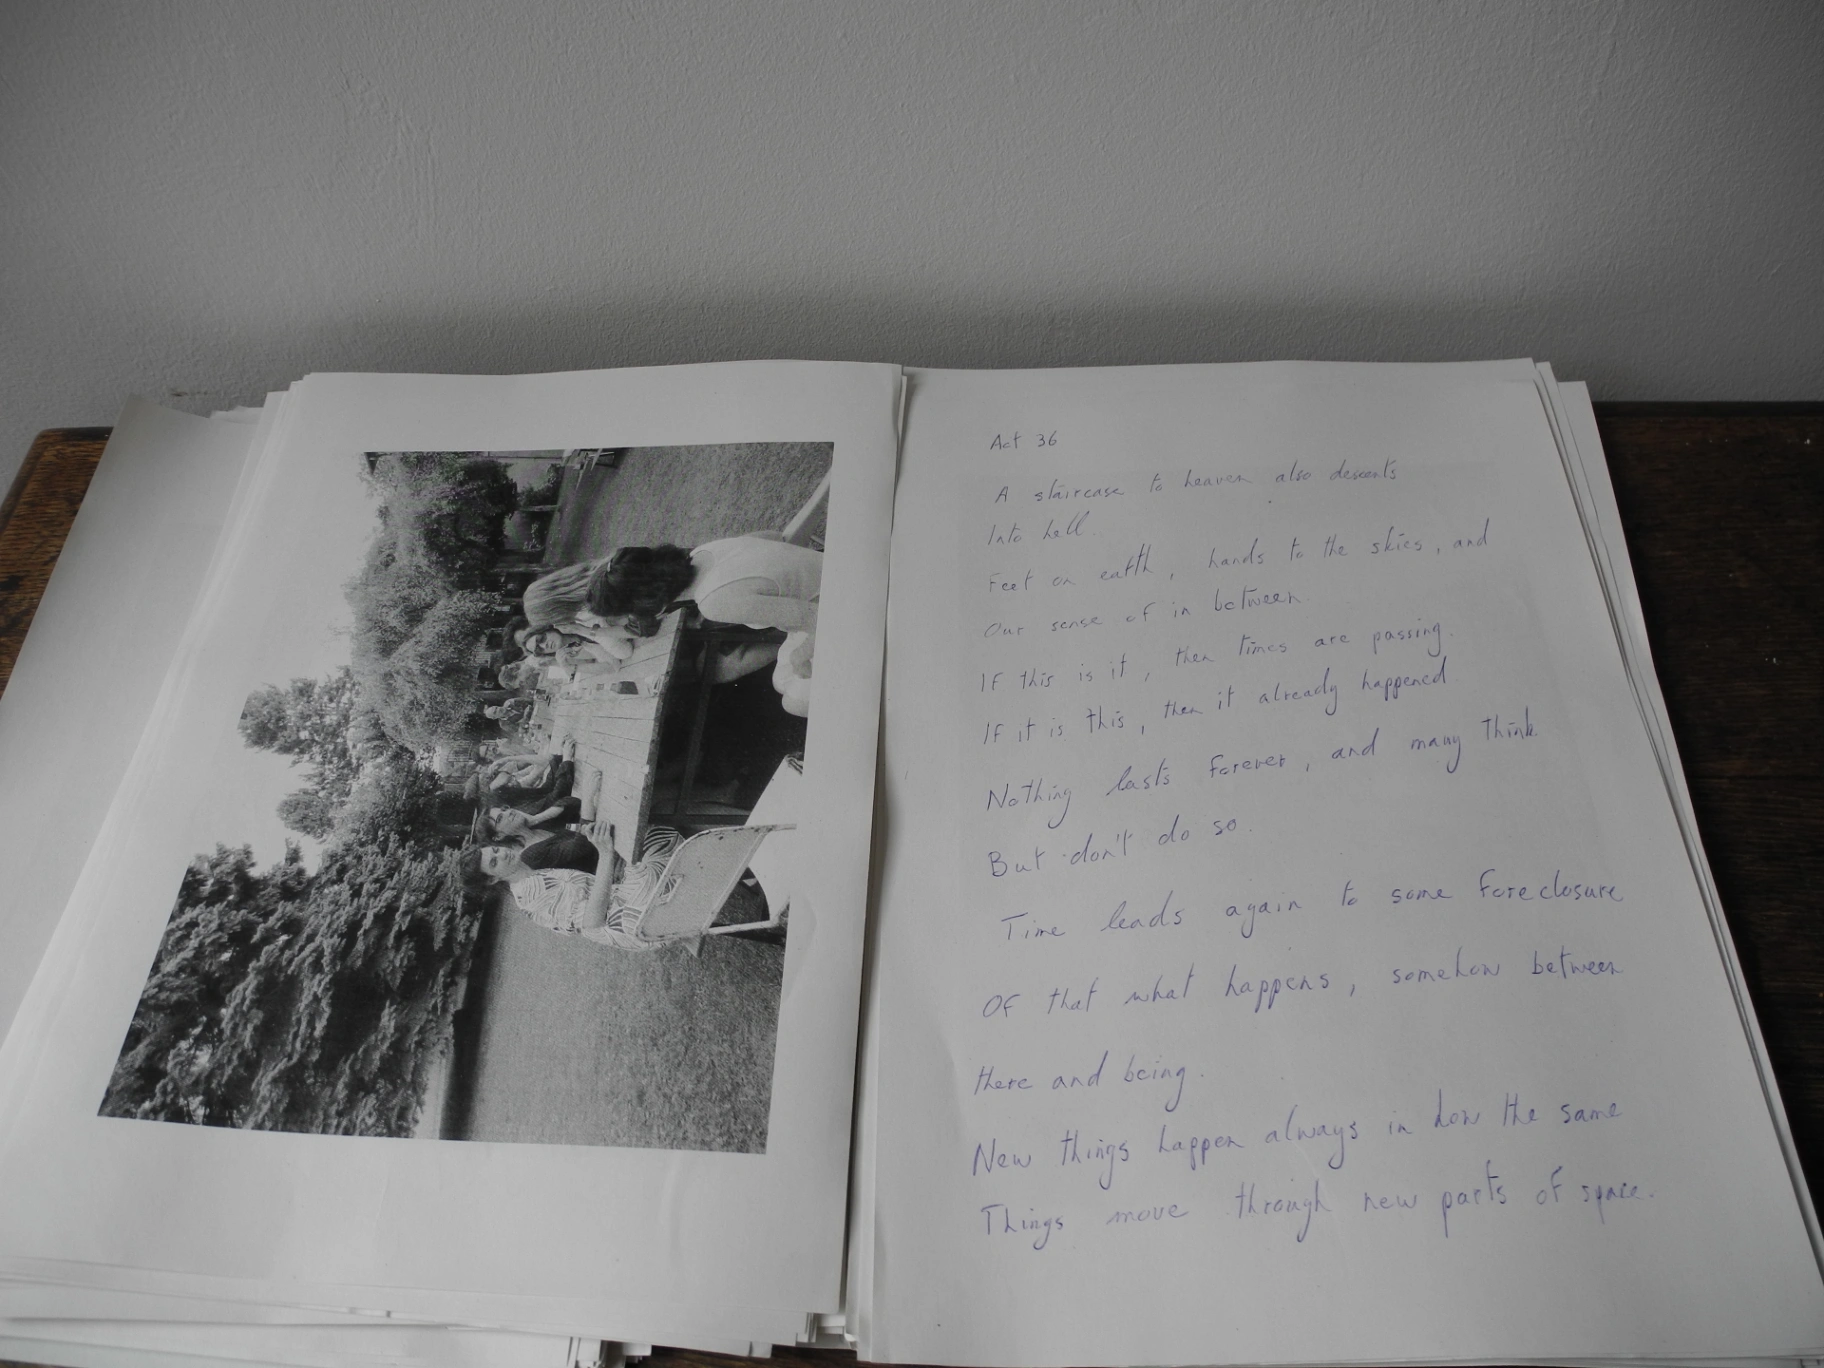 Act 36
A staircase to heaven also descents
Into hell.
Feet on earth, hands to the skies, and
Our sense of in between.
If this is it, then times are passing.
If it is this, then it already happened.
Nothing lasts forever, and many think
But don't do so.
Time leads again to some foreclosure
Of that what happens, somehow between
there and being.
New things happen always in how the same
Things move through new parts of space.